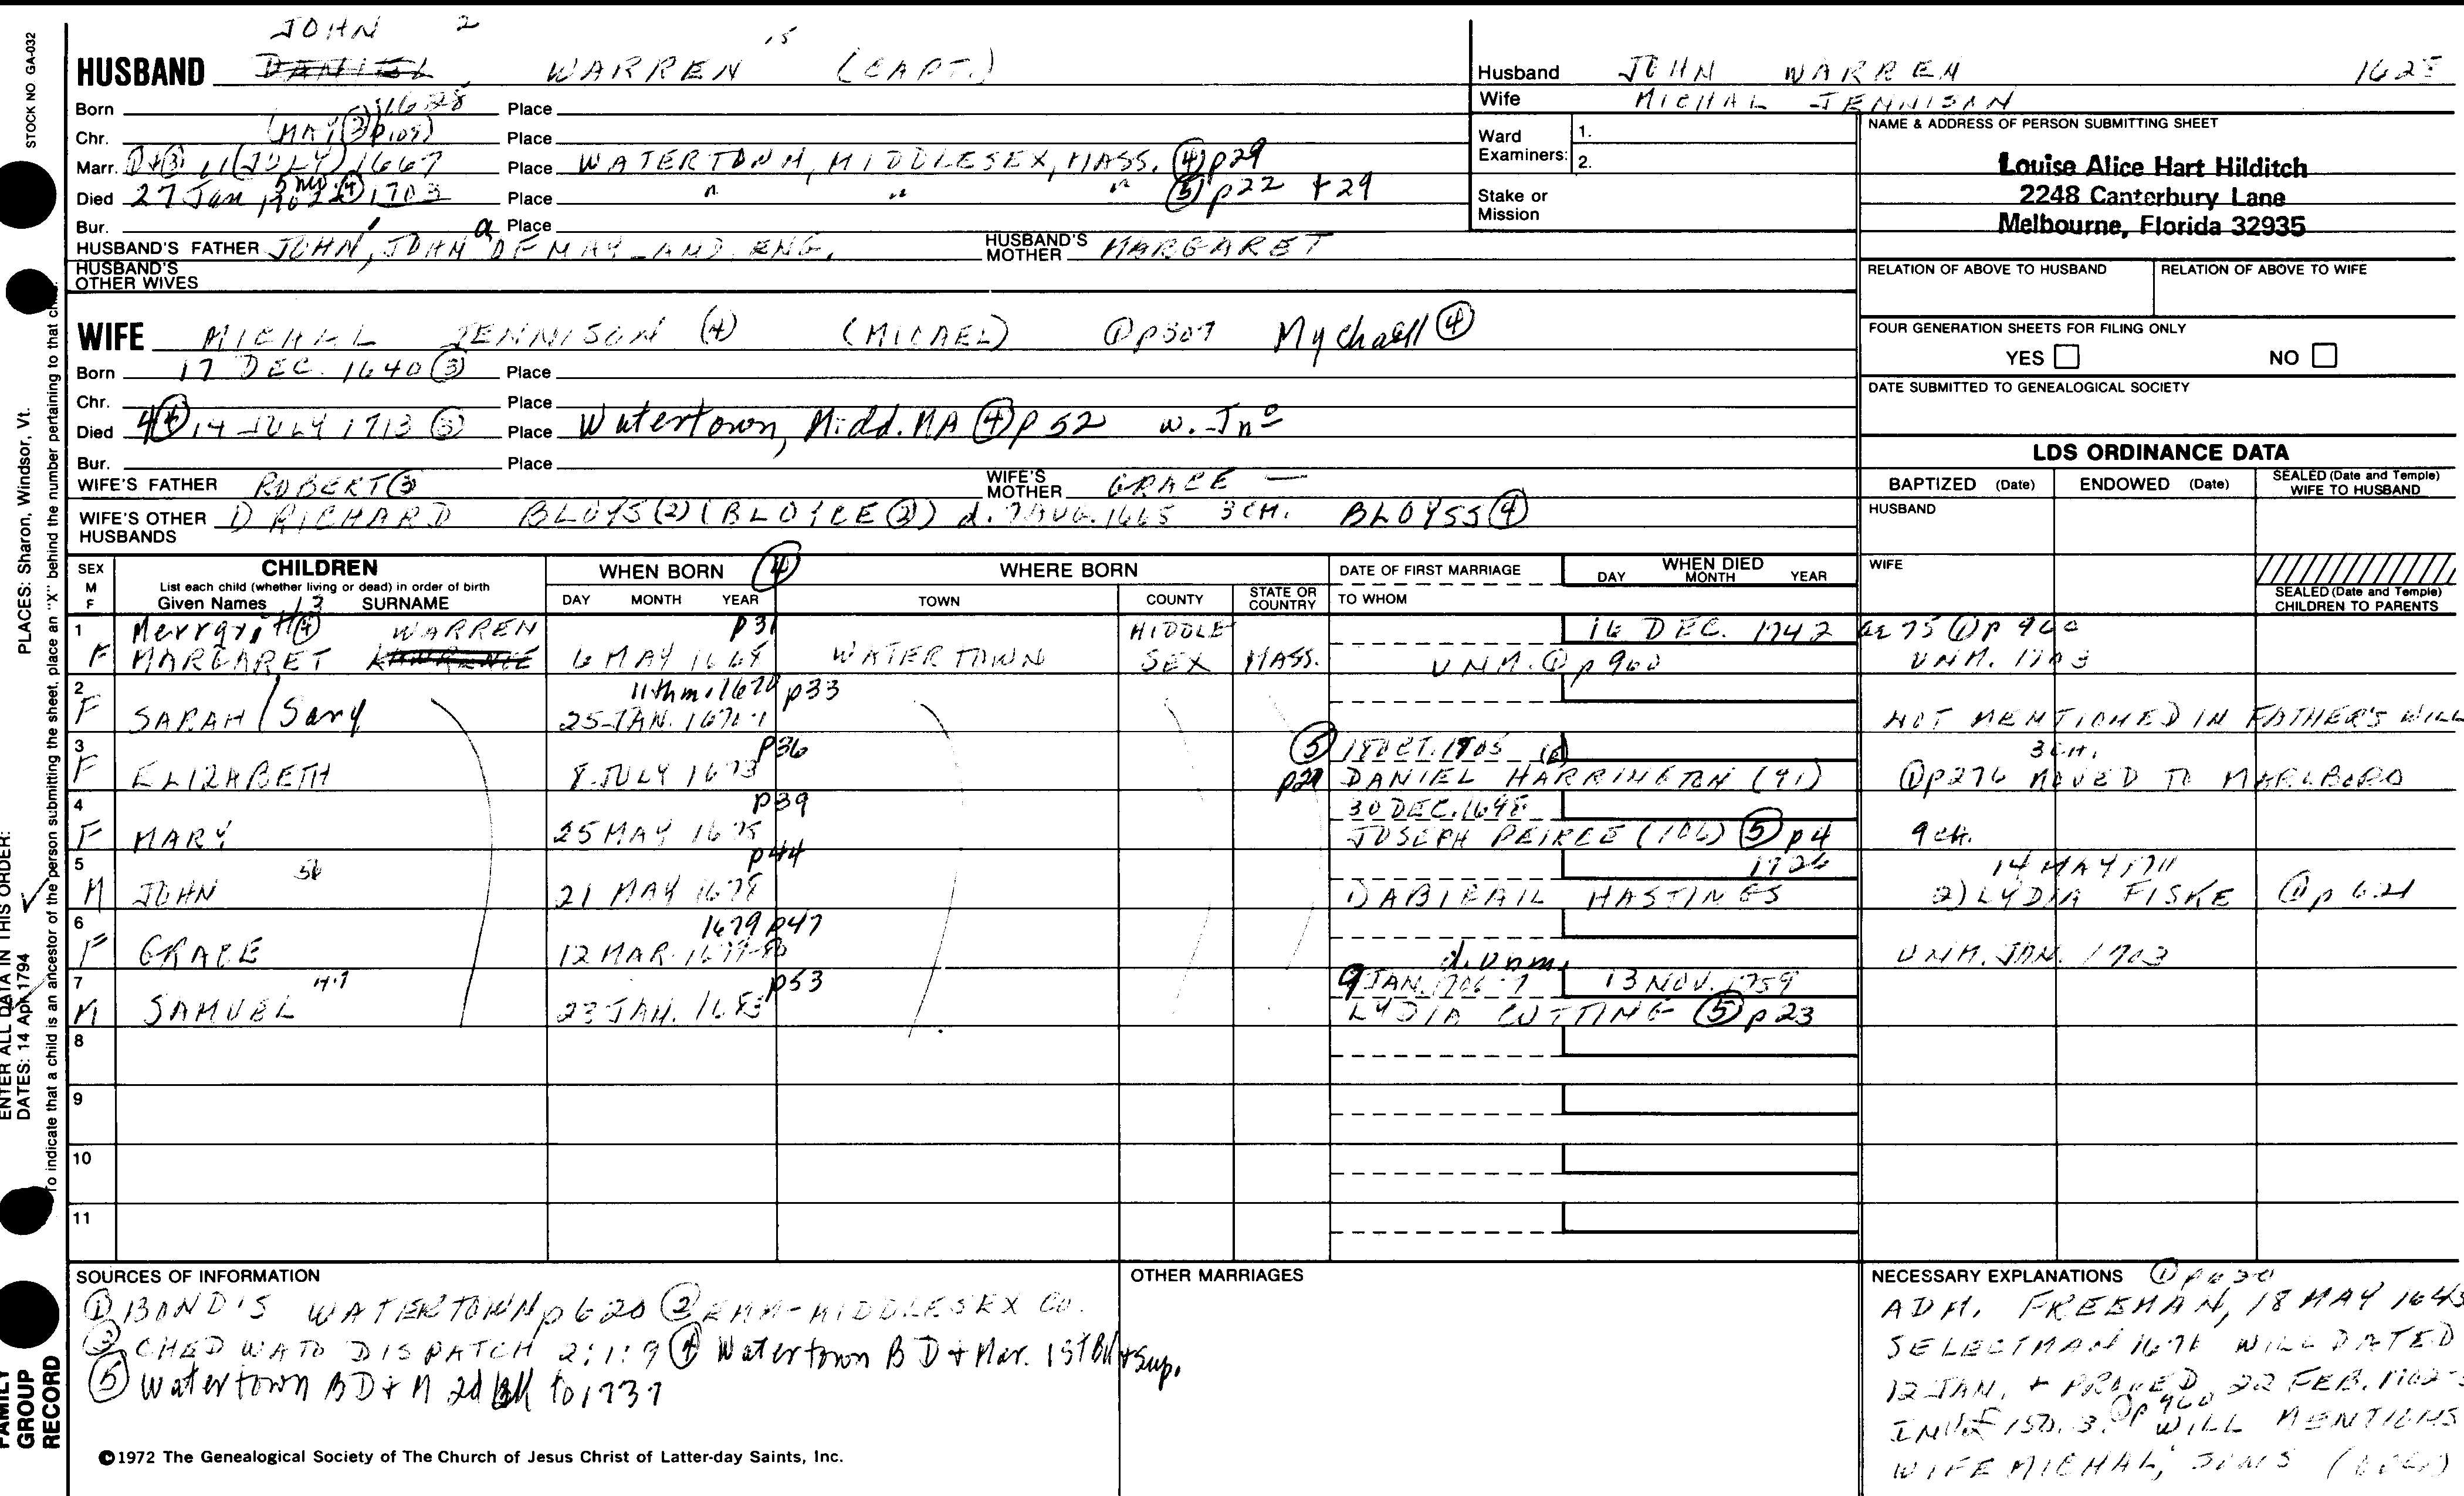 JOHN 2
HUSBAND DANIEL, WARREN 15 (CAPT.)
Born 1628 Place
Chr. (MAY ③ p.109) Place
Marr. 11 (JULY) 1667 Place WATERTOWN, MIDDLESEX, MASS. ④ p29
Died 27 Jan 1703 Place " " " ⑤ p22 + 29
Bur. Place
HUSBAND'S FATHER JOHN, JOHN OF MAY AND ENG. HUSBAND'S MOTHER MARGARET
HUSBAND'S OTHER WIVES
Husband JOHN WARREN 1628
Wife MICHAL JENNISON
Ward Examiners: 1.
2.
Stake or Mission
NAME & ADDRESS OF PERSON SUBMITTING SHEET
Louise Alice Hart Hilditch
2248 Canterbury Lane
Melbourne, Florida 32935
RELATION OF ABOVE TO HUSBAND RELATION OF ABOVE TO WIFE
FOUR GENERATION SHEETS FOR FILING ONLY
YES NO
DATE SUBMITTED TO GENEALOGICAL SOCIETY
WIFE MICHAL JENNISON (4) (MICAEL) ① p307 Mychaell ④
Born 17 DEC. 1640 ③ Place
Chr. Place
Died 14 JULY 1713 ③ Place Watertown, Midd. MA ④ p 52 w. Jno
Bur. Place
WIFE'S FATHER ROBERT ③ WIFE'S MOTHER GRACE —
WIFE'S OTHER HUSBANDS 1) RICHARD BLOYS (2) (BLOICE ②) d. 7 AUG. 1665 3 CH. BLOYSS ④
LDS ORDINANCE DATA
BAPTIZED (Date) ENDOWED (Date) SEALED (Date and Temple) WIFE TO HUSBAND
HUSBAND
WIFE
SEALED (Date and Temple) CHILDREN TO PARENTS
SEX M F
CHILDREN
List each child (whether living or dead) in order of birth
Given Names 13 SURNAME
WHEN BORN ④
DAY MONTH YEAR
WHERE BORN
TOWN COUNTY STATE OR COUNTRY
DATE OF FIRST MARRIAGE
TO WHOM
WHEN DIED
DAY MONTH YEAR
1 Merrgrit ④ WARREN p31 MIDDLE 16 DEC. 1742 ae 75 ① p 960
F MARGARET LAWRENCE 6 MAY 1668 WATERTOWN SEX MASS. UNM. ① p 960 UNM. 1703
2 11th mo 1670 p33
F SARAH / Sary 25 JAN. 1670-1 NOT MENTIONED IN FATHER'S WILL
3 p36 ⑤ 18 OCT. 1705 3 CH.
F ELIZABETH 8 JULY 1673 DANIEL HARRINGTON (91) ① p276 MOVED TO MARLBORO
4 p39 30 DEC. 1698
F MARY 25 MAY 1675 JOSEPH PEIRCE (106) ⑤ p4 9 CH.
5 p44 1726 14 MAY 1711
M JOHN 56 21 MAY 1678 1) ABIGAIL HASTINGS 2) LYDIA FISKE ① p 621
6 1679 p47
F GRACE 12 MAR. 1679-80 d. unm. UNM. JAN. 1703
7 p53 9 JAN. 1706-7 13 NOV. 1759
M SAMUEL 47 23 JAN. 1683 LYDIA CUTTING ⑤ p 23
8
9
10
11
SOURCES OF INFORMATION
① BOND'S WATERTOWN p 620 ② EMM-MIDDLESEX CO.
③ DISPATCH 2:1:9 ④ Watertown B D + Mar. 1st Bk + Sup.
⑤ Watertown B D + M 2d Bk to 1737
OTHER MARRIAGES
NECESSARY EXPLANATIONS ① p 620
ADM. FREEMAN, 18 MAY 1645
SELECTMAN 1676 WILL DATED
12 JAN. + PROVED 22 FEB. 1702-3
INV. £150.3. ① p 960 WILL MENTIONS
WIFE MICHAL, SONS
©1972 The Genealogical Society of The Church of Jesus Christ of Latter-day Saints, Inc.
STOCK NO GA-032
PLACES: Sharon, Windsor, Vt.
ENTER ALL DATA IN THIS ORDER:
DATES: 14 Apr 1794
To indicate that a child is an ancestor of the person submitting the sheet, place an "X" behind the number pertaining to that
FAMILY GROUP RECORD